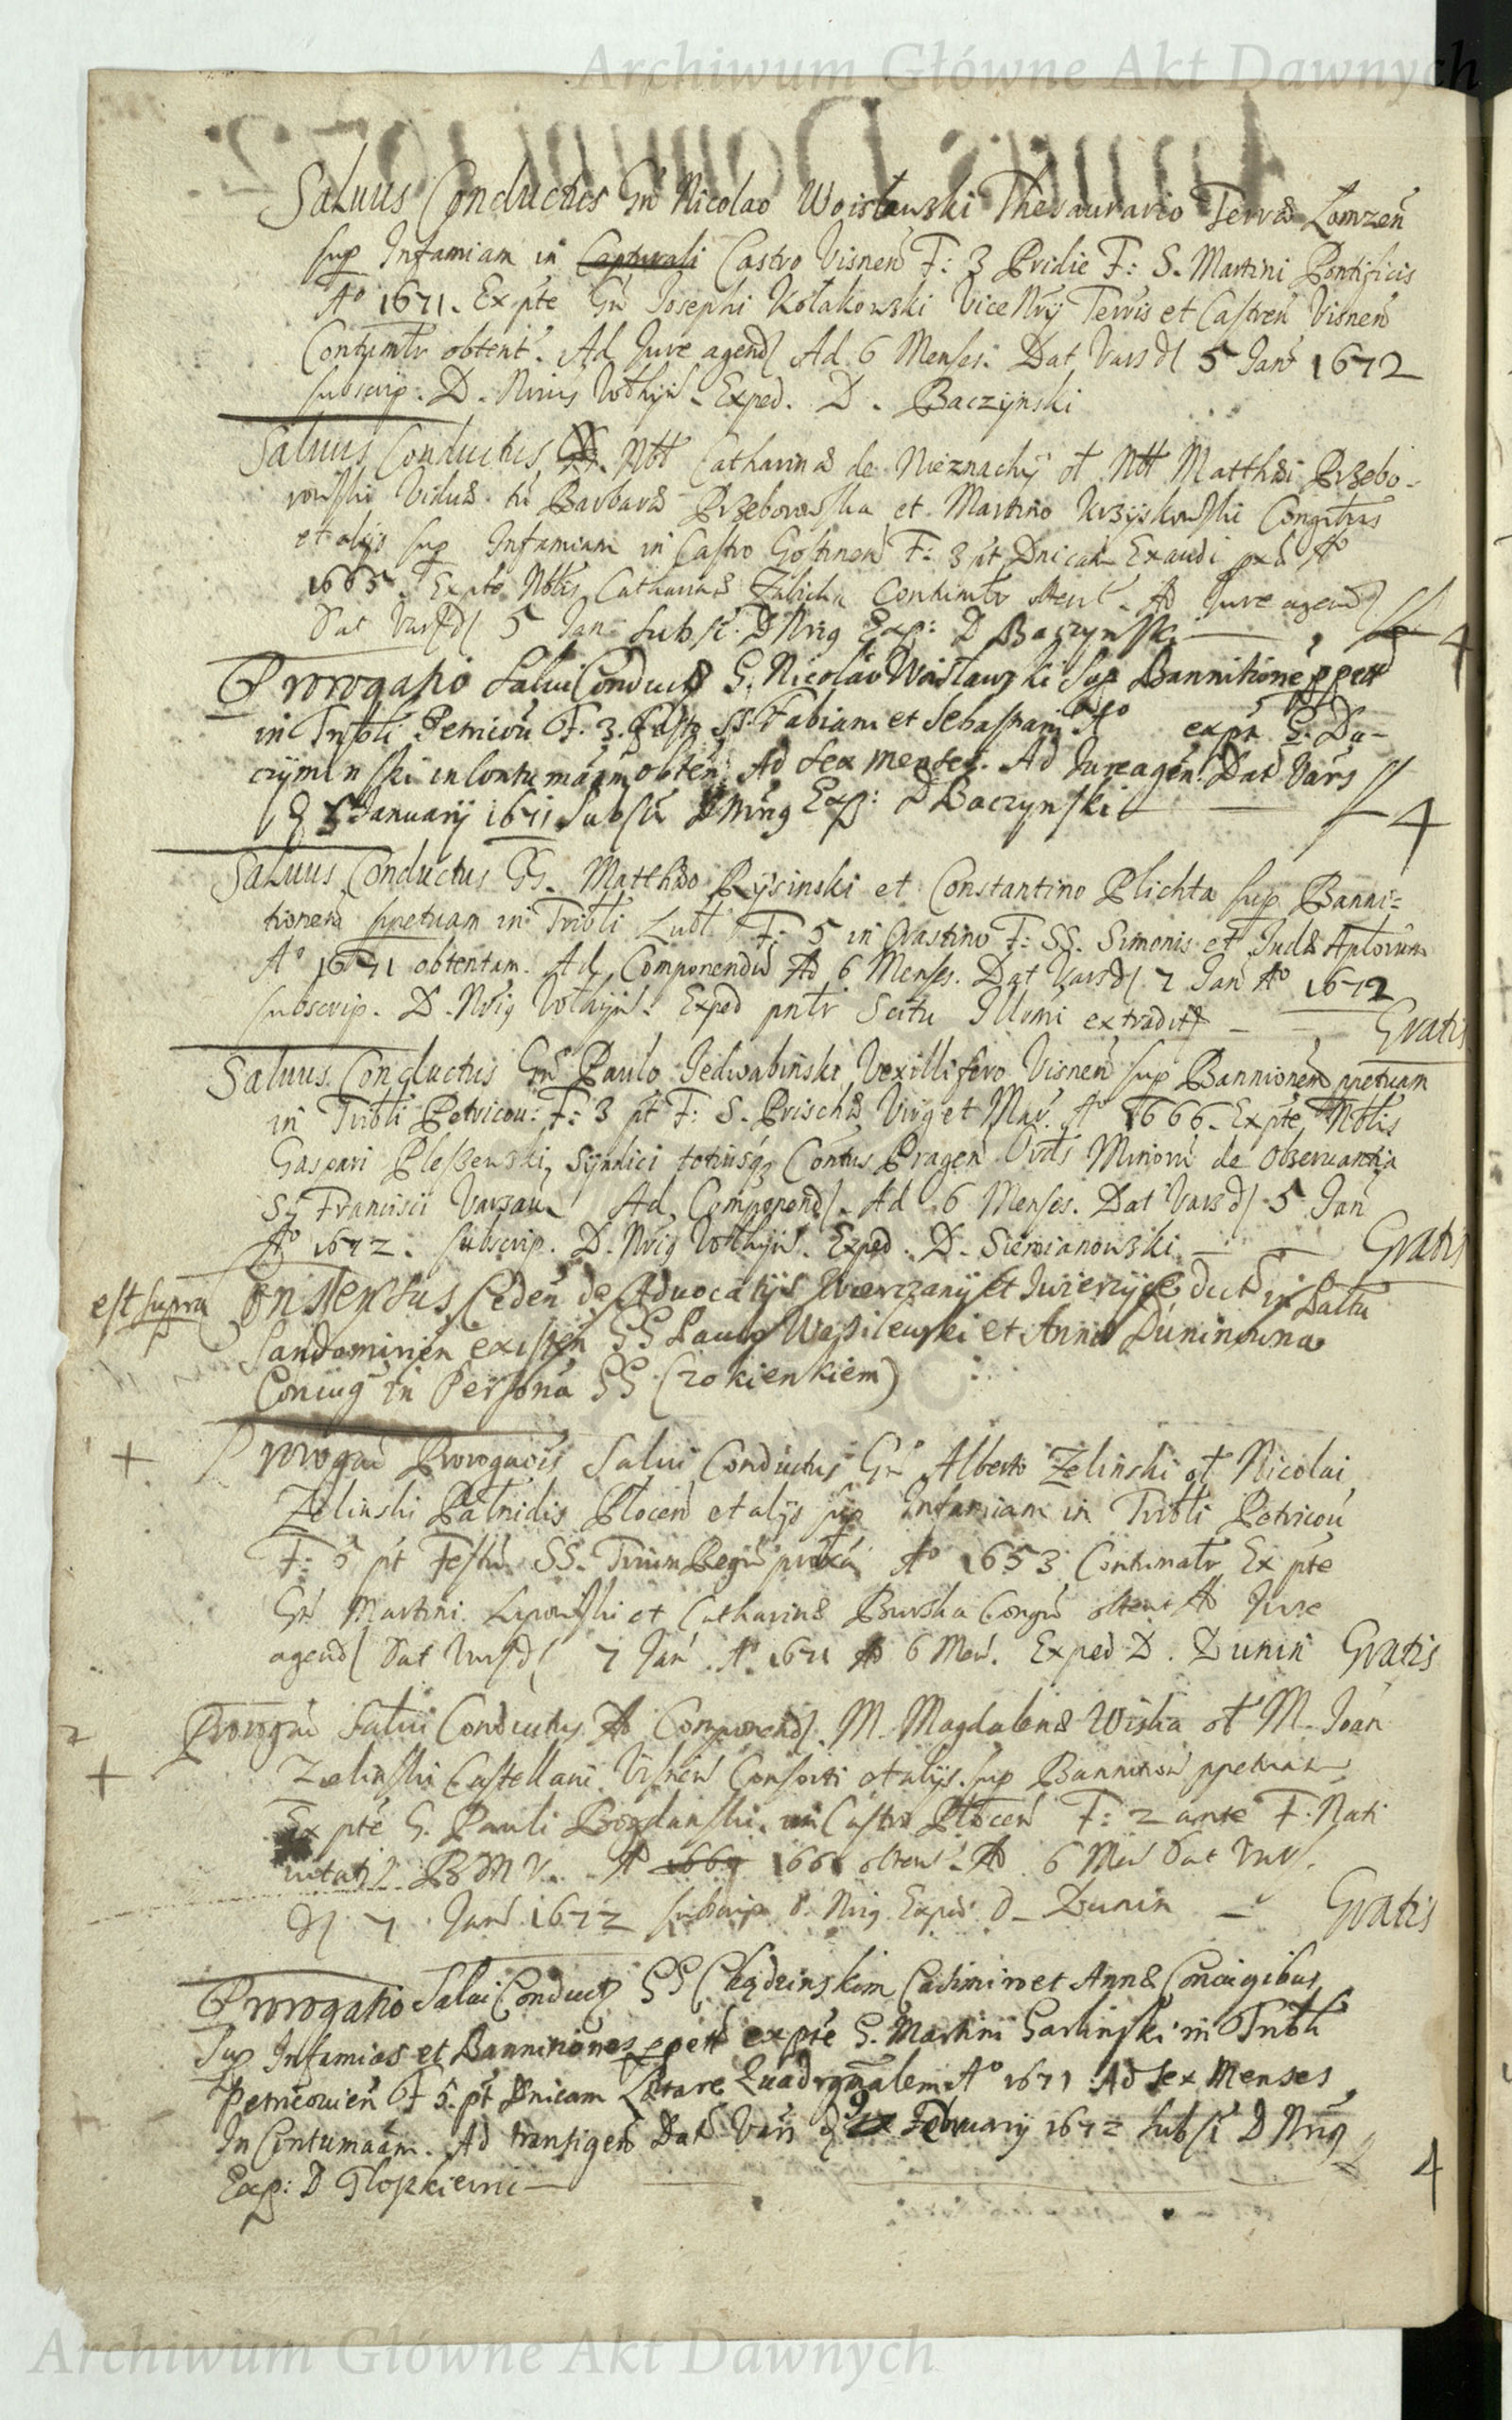 Archiwum Główne Akt Dawnych
Salvus Conductus Gn̄ Nicolao Woisławski Thesaurario Terræ Lomzen̄
sup Infamiam in Capturali Castro Visnen̄ F: 3 Pridie F: S. Martini Pontificis
Aº 1671. Ex pte Gn̄ Josephi Kołakowski Vice Nrij Terris et Castren̄ Visnen̄
Contumtr obtent. Ad Jure agend Ad 6 Menses. Dat Vars d 5 Jan̄ 1672
subscrip. D. Nrius Exped. D. Baczÿnski
Salvus Conductus GG. Nbl Catharinæ de Nieznachÿ ol Nbl Matthæi Przebo-
rowski Viduæ tū Barbaræ Przeborowska et Martino Krzÿskowski Congibus
et alijs sup Infamiam in Castro Gostinen̄ F: 3 pt Dnicam Exaudi Aº
1665. Ex pte Nblis Catharinæ Zalicka Contumtr obtent. Ad Jure agend
Dat Vars d 5 Jan Subsc. D Nrig Exp: D Baczynski 4
Prorogatio Salvi Conduct G. Nicolao Woislawski Sup Bannitione ppet
in Tribli Petricou F. 3. Festū SS. Fabiani et Sebastiani Aº ex pte G. Du-
czyminski in Contumaam obten. Ad Sex menses. Ad Jure agen. Dat Vars
d 5 January 1671 Subsc D Nrig Exp: D Baczynski 4
Salvus Conductus GG. Matthæo Rÿsinski et Constantino Plichta sup Banni=
tionem ppetuam in Tribli Lubl F: 5 in Crastino F: SS. Simonis et Judæ Aplorum
Aº 1671 obtentam. Ad Componendū Ad 6 Menses. Dat Vars d 7 Jan Aº 1672
subscrip. D. Nrig Exped pntr Scitu Illmi extradit Gratis
Salvus Conductus Gn̄ Paulo Jedwabinski Vexillifero Visnen̄ sup Bannionem ppetuam
in Tribli Petricou: F: 3 pt F: S. Priscæ Virg et Mar. Aº 1666. Ex pte Nblis
Gaspari Pleszewski, Sÿndici totiusq Contus Pragen Ordis Minorū de Obseruantia
S. Francisci Varsau. Ad Componend. Ad 6 Menses. Dat Vars d 5 Jan
Aº 1672. subscrip. D. Nrig Exped. D. Siemianowski Gratis
est supra Consensus Ceden de Advocatijs Zwierczany et dict in Palttu
Sandomirien existen GG Paulo Wasilewski et Anna Duninowna
Coniug in Persona GG (z okienkiem)
+ Prorogao Prorogaois Salui Conductus Gn̄ Alberto Zelinski ol Nicolai
Zelinski Palnidis Plocen et alijs sup Infamiam in Tribli Petricou
F: 5 pt Festū SS. Trium Regū proxa Aº 1653 Contumatr Ex pte
Gn̄ Martini Lipowski et Catharinæ Burska Congū obtent Ad Jure
agend Dat Vars d 7 Jan Aº 1671 Ad 6 Men. Exped D. Dunin Gratis
2 Prorogao Salui Conductus Ad Componend. M. Magdalenæ Wiska ol M. Joan
+ Zelinski Castellani Visnen Consorti et alijs sup Bannition ppetuam
Ex pte G. Pauli Bogdanski in Castro Plocen F: 2 ante F. Nati
uitatis BMV. Aº 1667 166 obtent. Ad 6 Men Dat Vars
d 7 Jan 1672 subscrip D Nrig Exped D Dunin Gratis
Prorogatio Salui Conduct GG Chądzinskim Casimiro et Annæ Coniugibus
Sup Infamias et Bannitiones ppett ex pte G. Martini Garlinski in Tribli
Petricouien F 5. pt Dnicam Lætare Quadrgmalem Aº 1671 Ad Sex Menses
In Contumaam. Ad transigend Dat Vars d February 1672 Subsc D Nrig
Exp: D 4
Archiwum Główne Akt Dawnych